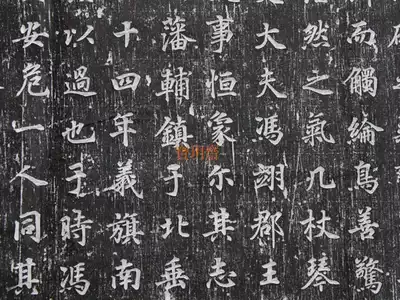 而觸綸鳥善驚
然之氣几杖琴
大夫馮翊郡王
事恒象尒其志
藩輔鎮于北垂
十四年義旗南
以過也于時馮
安危一人同其